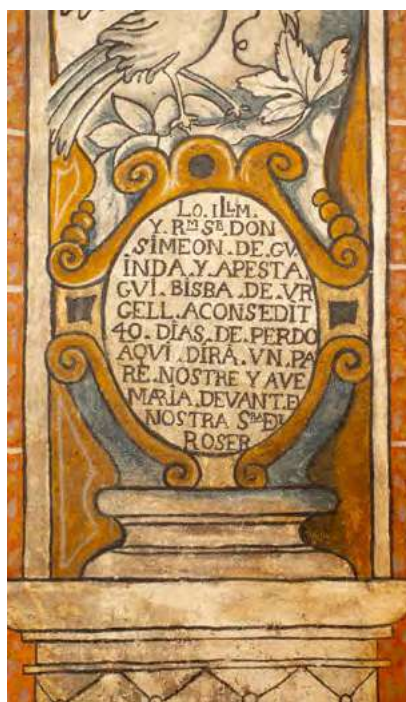 LO. ILLM.
Y. RM SR. DON
SIMEON. DE. GV
INDA. Y. APESTA.
GVI. BISBA. DE. VR
GELL. ACONSEDIT
40. DÍAS. DE. PERDO
AQVÍ. DIRÁ. VN. PA
RE. NOSTRE Y AVE
MARIA. DEVANT. D
NOSTRA SRA DL
ROSER